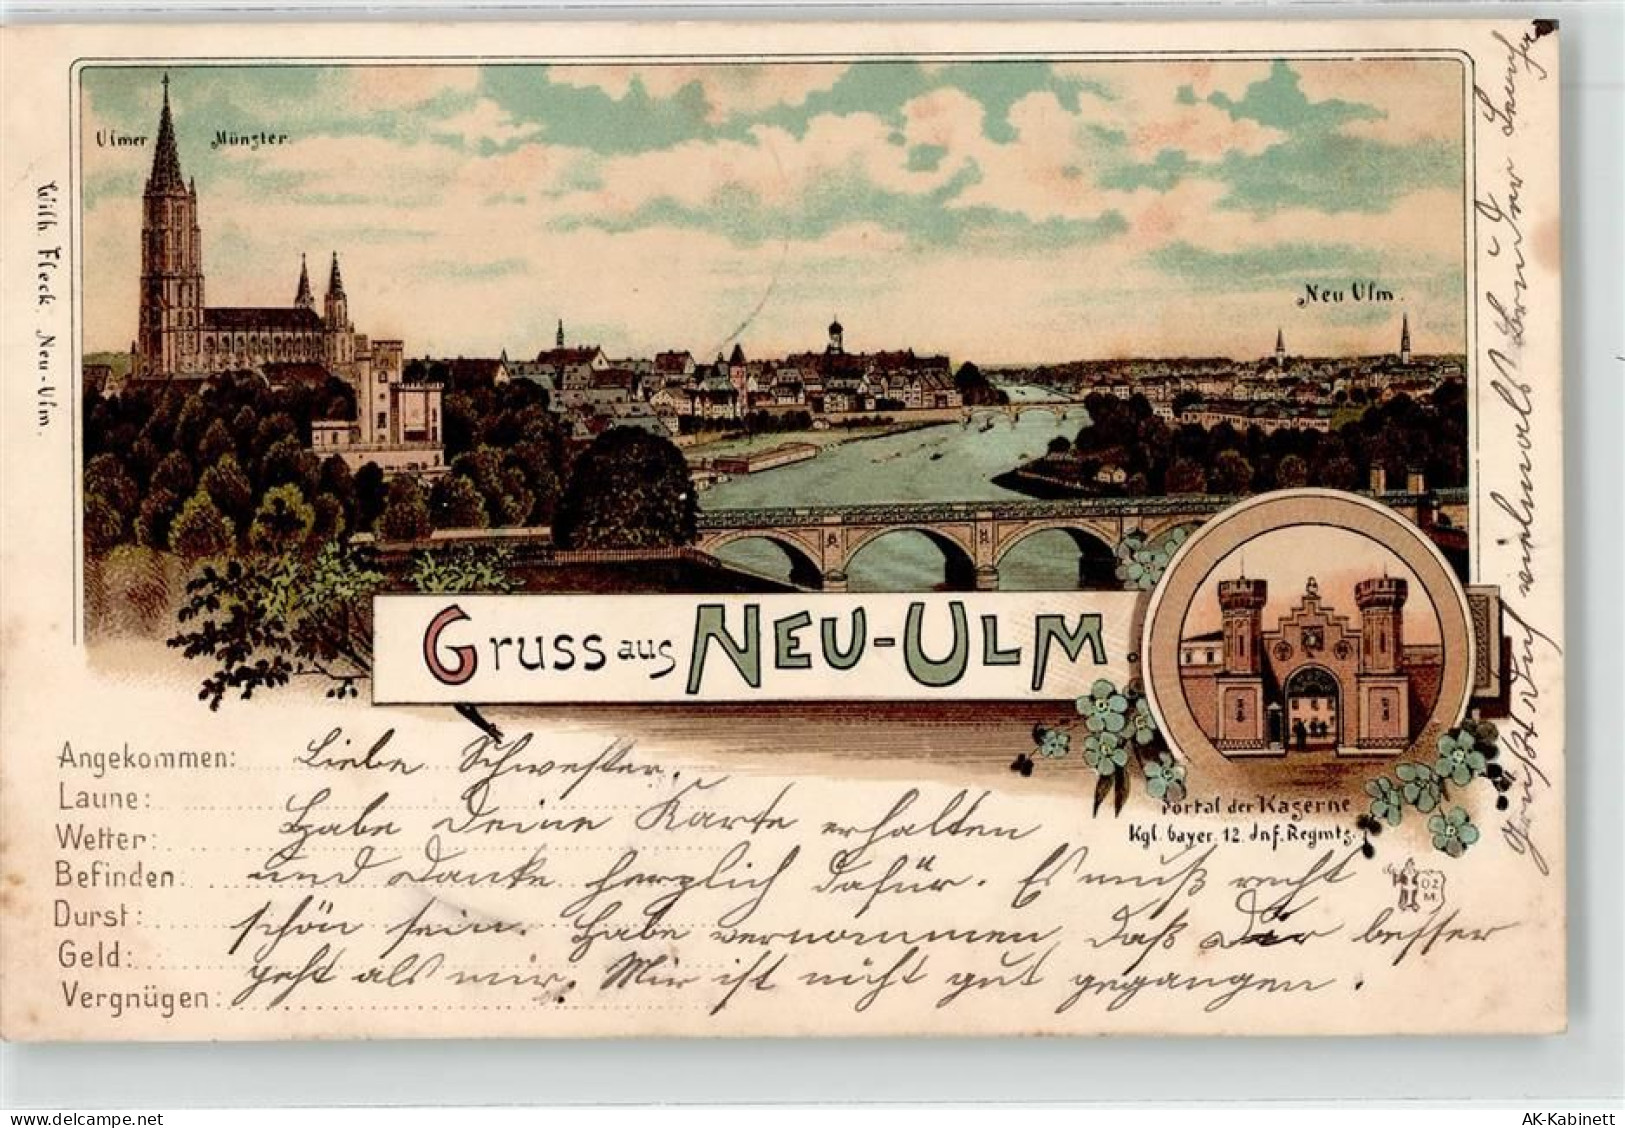 Ulmer Münster.
Neu Ulm.
Wilh. Fleck. Neu-Ulm.
Gruss aus NEU-ULM
Portal der Kaserne
Kgl. bayer. 12. Inf. Regmts.
OZM
Angekommen: Liebe Schwester.
Laune:
Habe Deine Karte erhalten
Wetter:
Befinden: und danke herzlich dafür. Es muß recht
Durst: schön sein. Habe vernommen, daß Dir besser
Geld: geht als mir. Mir ist nicht gut gegangen.
Vergnügen:
Grüßt Dich vielmals Bruder
delcampe.net
AK-Kabinett